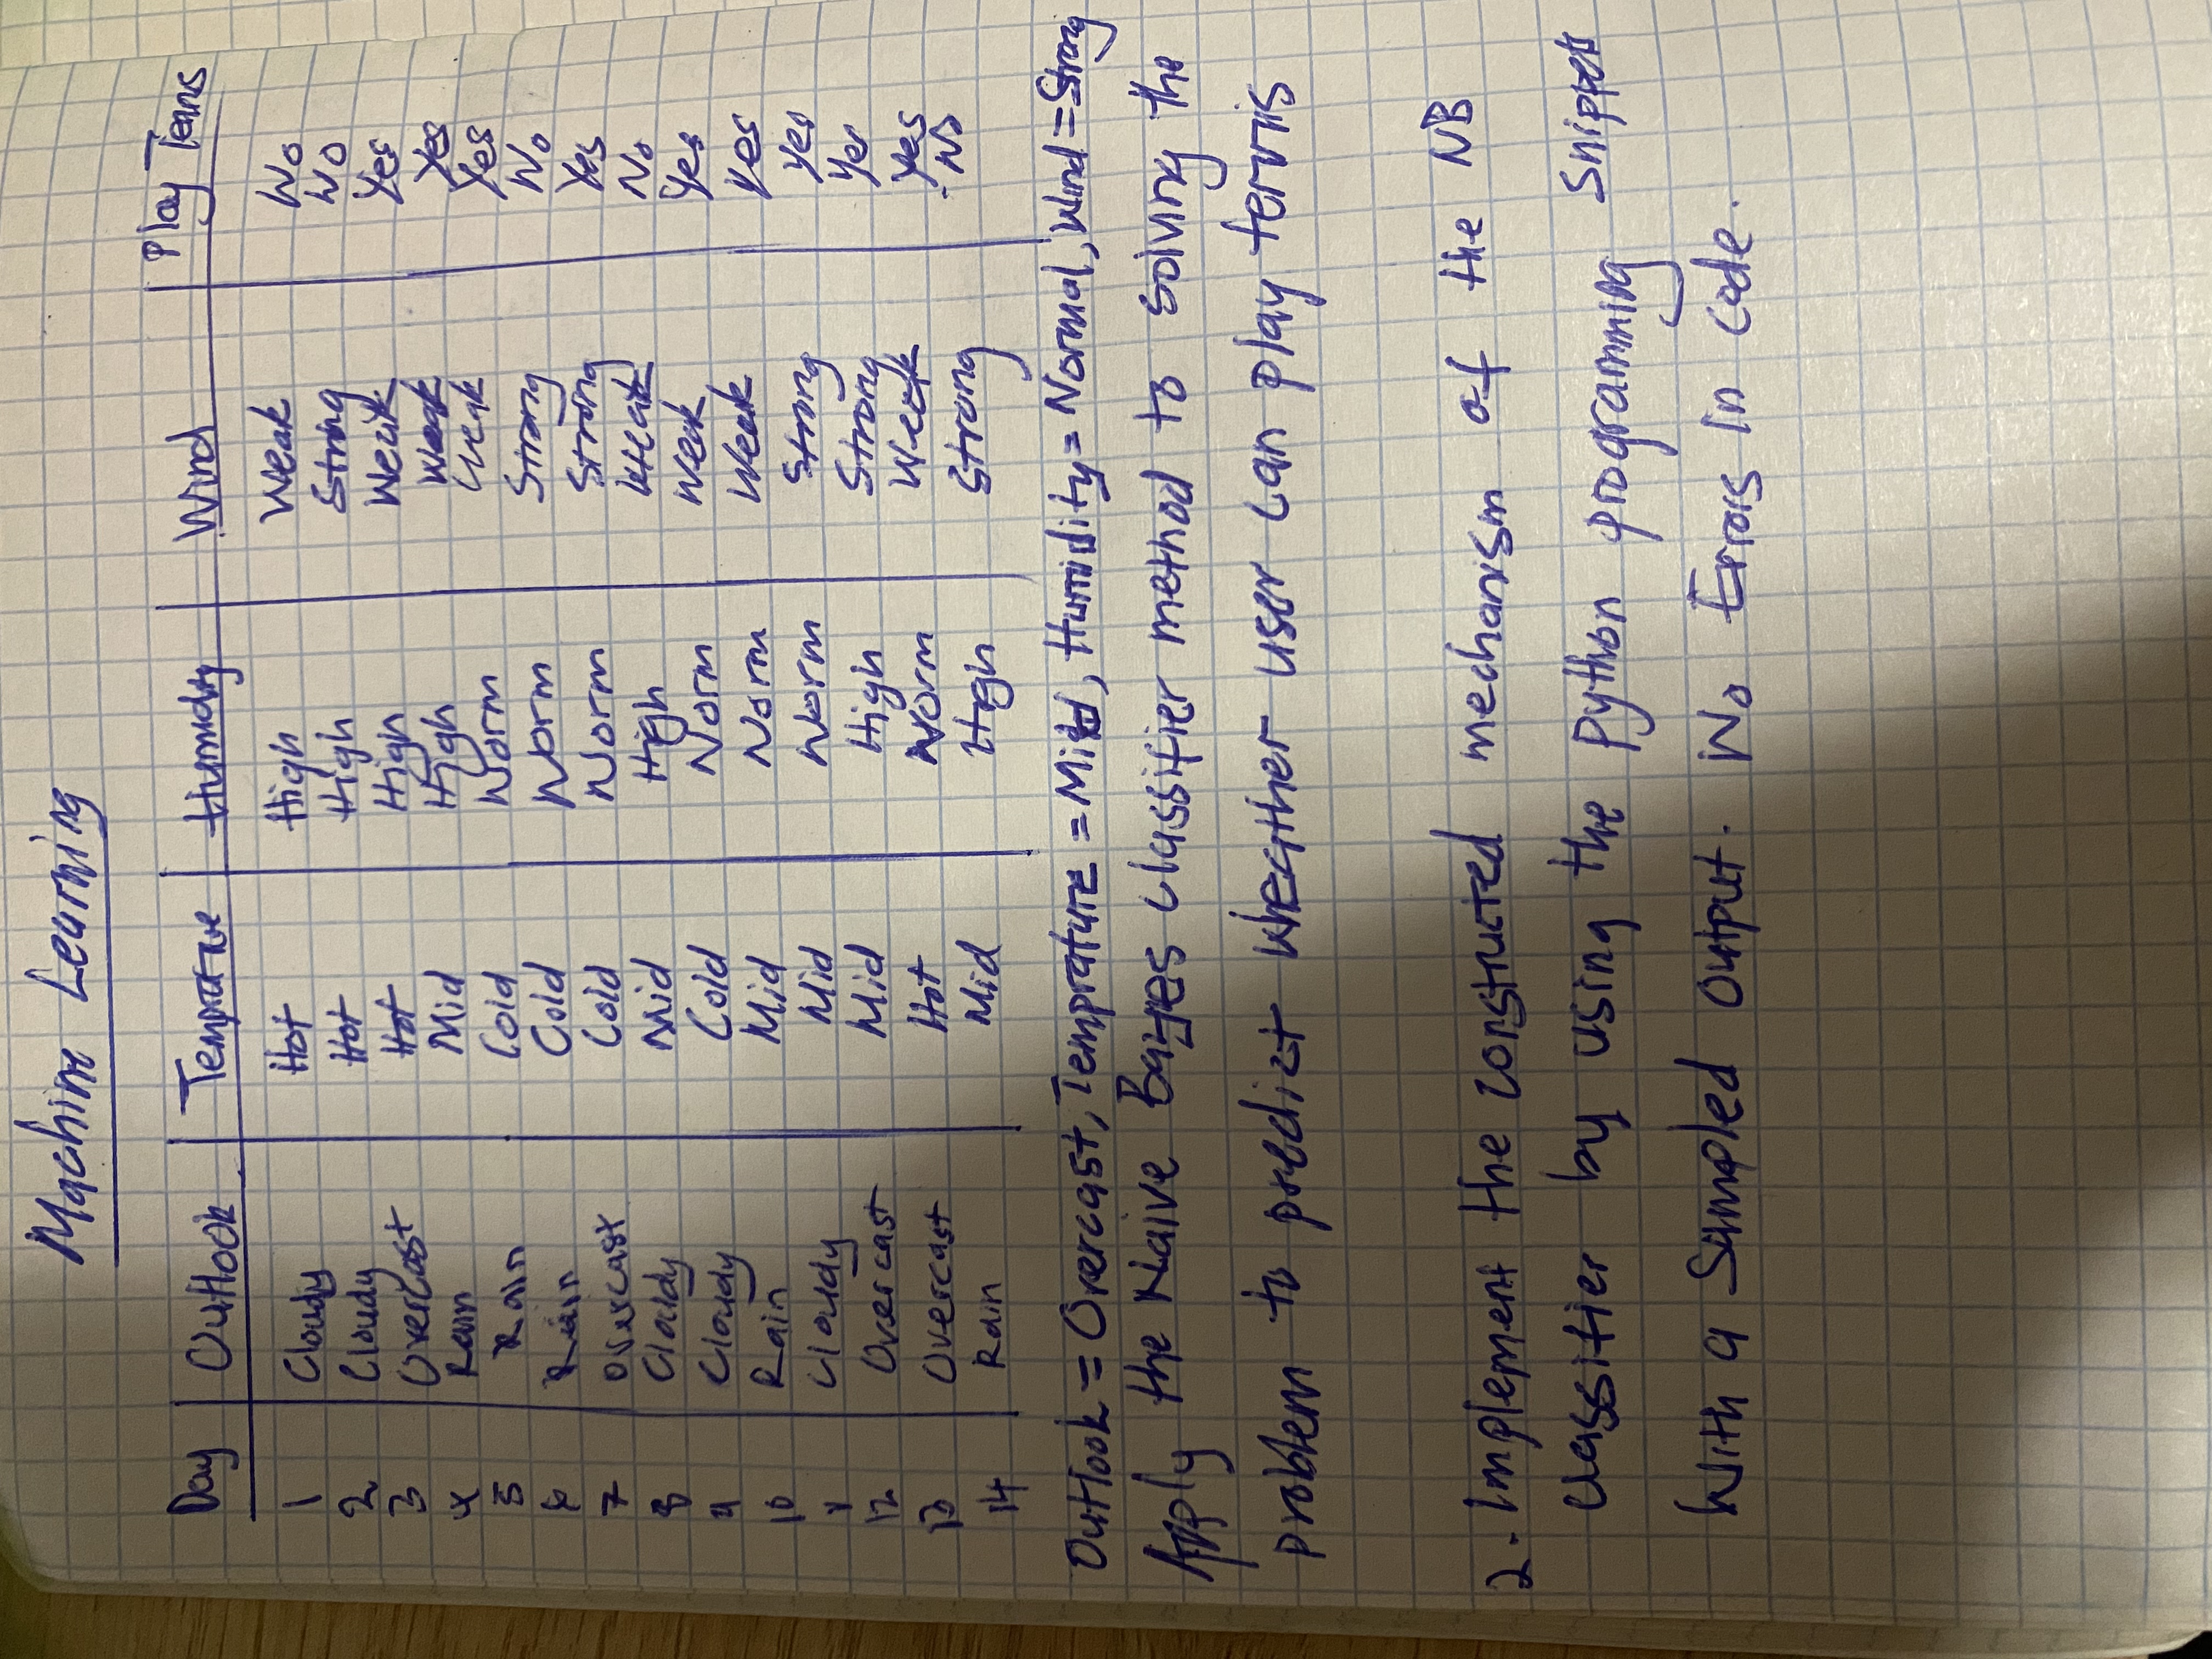 Machine Learning
Day Outlook Temprature Humidity Wind Play Tennis
1 Cloudy Hot High Weak No
2 Cloudy Hot High Strong No
3 Overcast Hot High Weak Yes
4 Rain Mid High Weak Yes
5 Rain Cold Norm Weak Yes
Rain Cold Norm Strong No
7 Overcast Cold Norm Strong Yes
8 Cloudy Mid High Weak No
Cloudy Cold Norm Weak Yes
10 Rain Mid Norm Weak Yes
Cloudy Mid Norm Strong Yes
12 Overcast Mid High Strong Yes
13 Overcast Hot Norm Weak Yes
14 Rain Mid High Strong No
Outlook = Overcast, Temprature = Mild, Humidity = Normal, Wind = Strong
Apply the Naive Bayes Classifier method to solving the
problem to predict wheather user can play tennis
2. Implement the constructed mechanism of the NB
classifier by using the python programming snippets
With a Sampled output. No Errors in code.